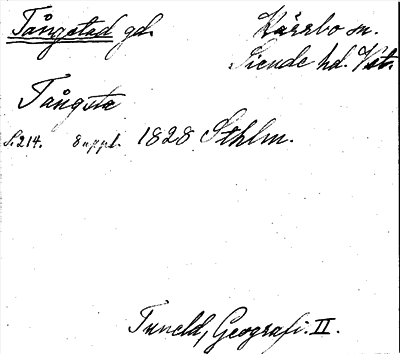 Tångstad gd. Kärrbo sn.
Siende hd. Vstm.
Tångsta
S. 214. 8 uppl. 1828 Sthlm.
Tuneld, Geografi. II.